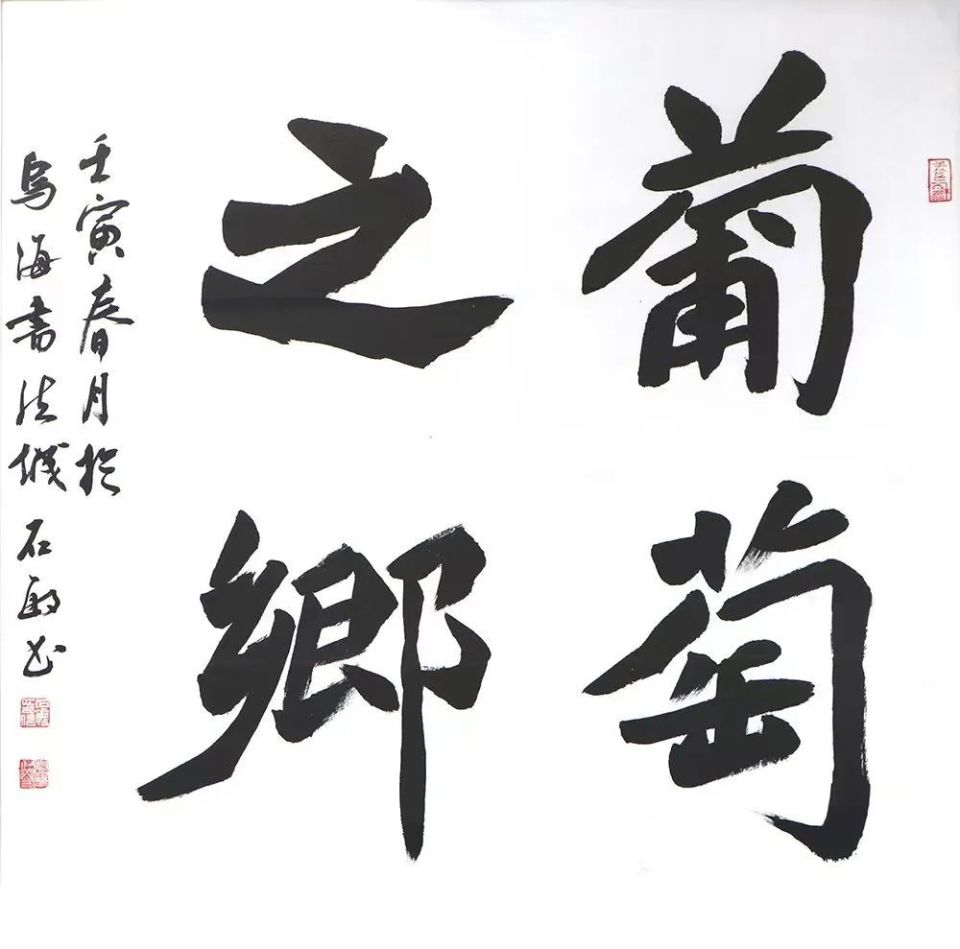 葡萄
之鄉
壬寅春月於
烏海書法城 石